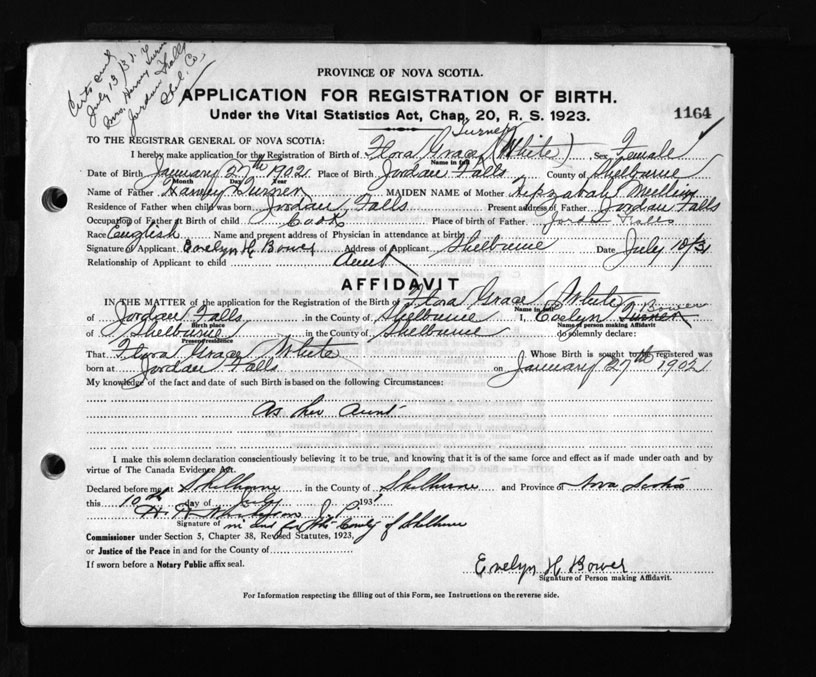 Certs sent
July 13/31 to
Mrs. Harvey Turner
Jordan Falls
Shel. Co.
PROVINCE OF NOVA SCOTIA.
APPLICATION FOR REGISTRATION OF BIRTH.
1164
Under the Vital Statistics Act, Chap. 20, R. S. 1923.
TO THE REGISTRAR GENERAL OF NOVA SCOTIA:
Turner
I hereby make application for the Registration of Birth of Flora Grace (White), Sex Female
Name in full
Date of Birth January 27th 1902 Place of Birth Jordan Falls County of Shelburne
Month Day Year
Name of Father Harvey Turner MAIDEN NAME of Mother
Residence of Father when child was born Jordan Falls Present address of Father Jordan Falls
Occupation of Father at Birth of child Cook Place of birth of Father Jordan Falls
Race English Name and present address of Physician in attendance at birth
Signature of Applicant Evelyn H Bower Address of Applicant Shelburne Date July 10/31
Relationship of Applicant to child Aunt
AFFIDAVIT
IN THE MATTER of the application for the Registration of the Birth of Flora Grace White
Name in full
of Jordan Falls in the County of Shelburne I, Evelyn Turner Bower
Birth place Name of person making Affidavit
of Shelburne in the County of Shelburne do solemnly declare:
Present residence
That Flora Grace White Whose Birth is sought to be registered was
born at Jordan Falls on January 27th 1902
My knowledge of the fact and date of such Birth is based on the following Circumstances:
As her Aunt
I make this solemn declaration conscientiously believing it to be true, and knowing that it is of the same force and effect as if made under oath and by
virtue of The Canada Evidence Act.
Declared before me at Shelburne in the County of Shelburne and Province of Nova Scotia
this 10th day of July 1931
J. P.
Signature of in and for the County of Shelburne
Commissioner under Section 5, Chapter 38, Revised Statutes, 1923,
or Justice of the Peace in and for the County of
If sworn before a Notary Public affix seal.
Evelyn H Bower
Signature of Person making Affidavit.
For Information respecting the filling out of this Form, see Instructions on the reverse side.